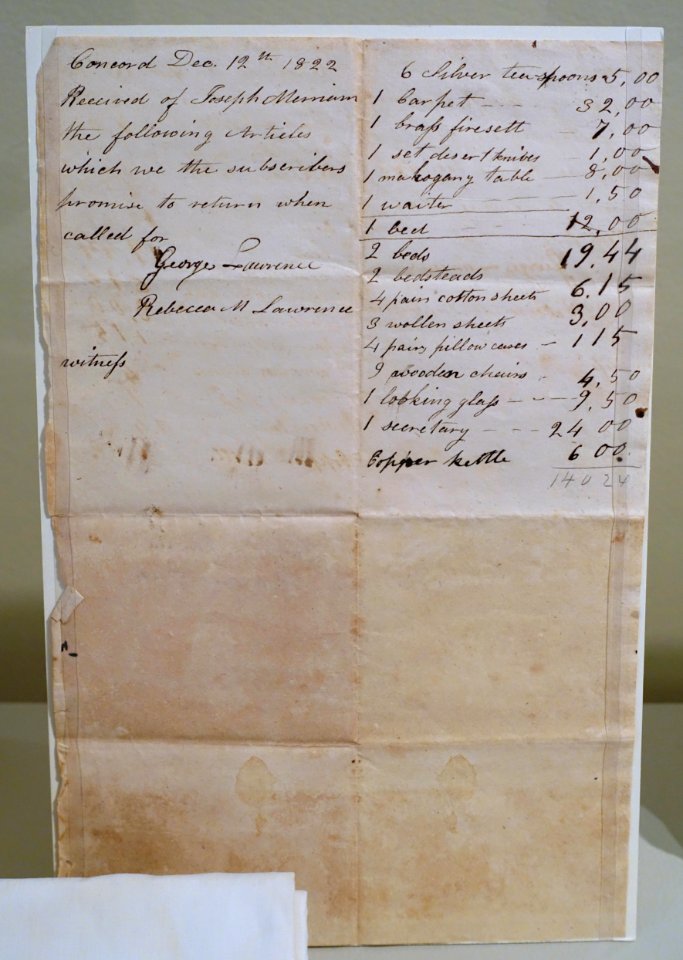 Concord Dec. 12th 1822
Received of Joseph Merriam
the following Articles
which we the subscribers
promise to return when
called for
George Lawrence
Rebecca M Lawrence
witness
6 Silver tea spoons 5,00
1 Carpet - - - 32,00
1 brass firesett - 7,00
1 set desert knives - 1,00
1 mahogany table - 8,00
1 waiter - 1,50
1 bed 12,00
2 beds 19,44
2 bedsteads
4 pair cotton sheets 6,15
3 wollen sheets 3,00
4 pair pillow cases - 1 15
9 wooden chairs - 4,50
1 looking glass - - - 9,50
1 secretary - - - 24 00
Copper kettle 6 00
140 24